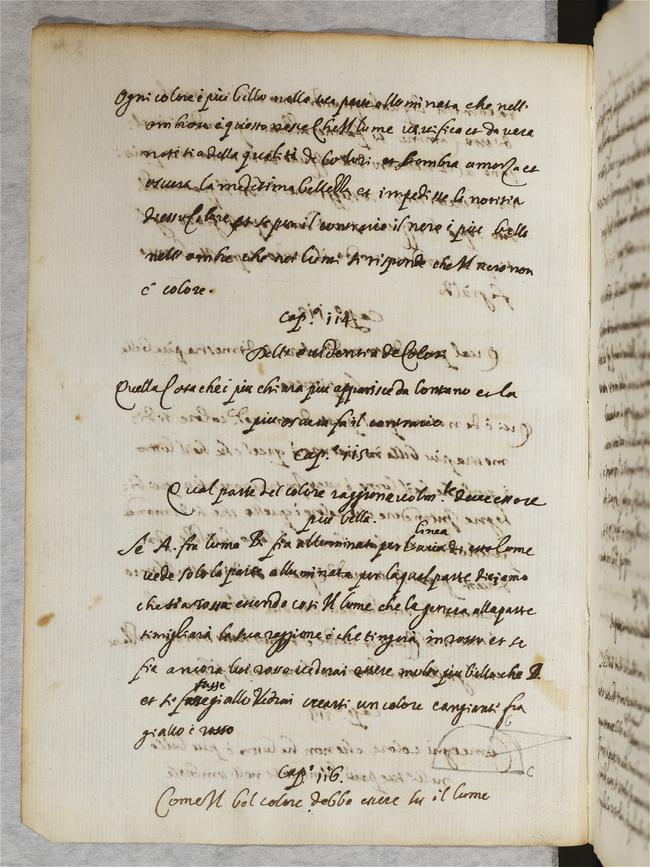 Ogni colore è più bello nella sua parte alluminata che nell'
ombra e questo nasce che il lume vivifica et da vera
notitia della qualità de Colori et l'ombra amorza et
oscura la medesima bellezza et impedisse la notitia
d'esso Colore et se per il contrario il nero è più bello
nell'ombre che nei lumi si risponde che il nero non
è colore.
Cap.º 114
Delle evidentia de Colori
Quella Cosa che è più chiara più apparisce da lontano et la
più oscura fa il contrario
Cap.º 115
Qual parte del colore raggionevolm.te deve essere
più bella.
linea
Se A. fia lume B. fia alluminato per da esso lume
vede solo la parte alluminata per la qual parte diciamo
che sia rossa essendo così il lume che la genera alla parte
simigliarà la sua raggione è che tingerà in rosso et se
fia ancora lui rosso vederai essere molto più bello che B.
fusse
et se giallo vedrai crearsi un colore cangiante fra
giallo è rosso
b
c
Cap.º 116.
Come il bel colore debbe essere su il lume